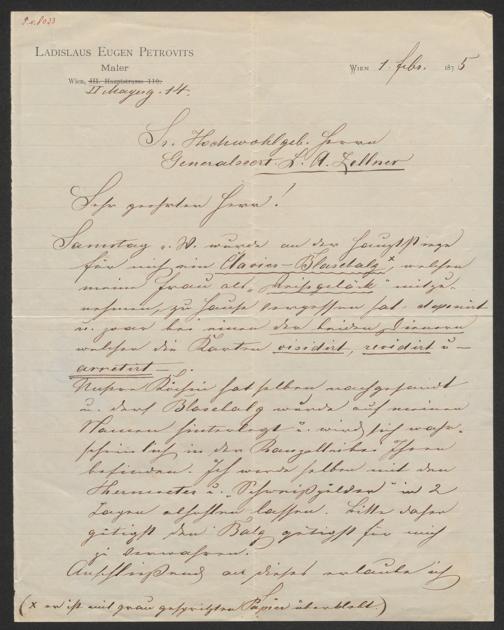 LADISLAUS EUGEN PETROVITS
Maler
Wien, III. Hauptstrasse 110.
II Mayerg. 14.
WIEN 1. febr. 1875
Sr. Hochwohlgeb. Herrn
Generalsecret. L. A. Zellner
Sehr geehrter Herr!
Samstag a. W. wurde an der Hauptstiege
für mich ein Clavier-Blasebalg x, welchen
meine Frau als "Reisegepäck" mitzu-
nehmen, zu Hause vergessen hat, deponirt
u. zwar bei einem der beiden Dienern
welcher die Karten visidirt, revidirt u –
arretirt –.
Unsre Köchin hat selben nachgesandt
u. der Blasebalg wurde auf meinen
Namen hinterlegt u. wird sich wahr-
scheinlich in der Kanzlei bei Ihnen
befinden. Ich werde selben mit den
u. in 2
Tagen abholen lassen. Bitte daher
gütigst den Balg gütigst für mich
zu verwahren.
Anschließend an dieses erlaube ich
(x er ist mit grau gespritzten Papier überklebt.)